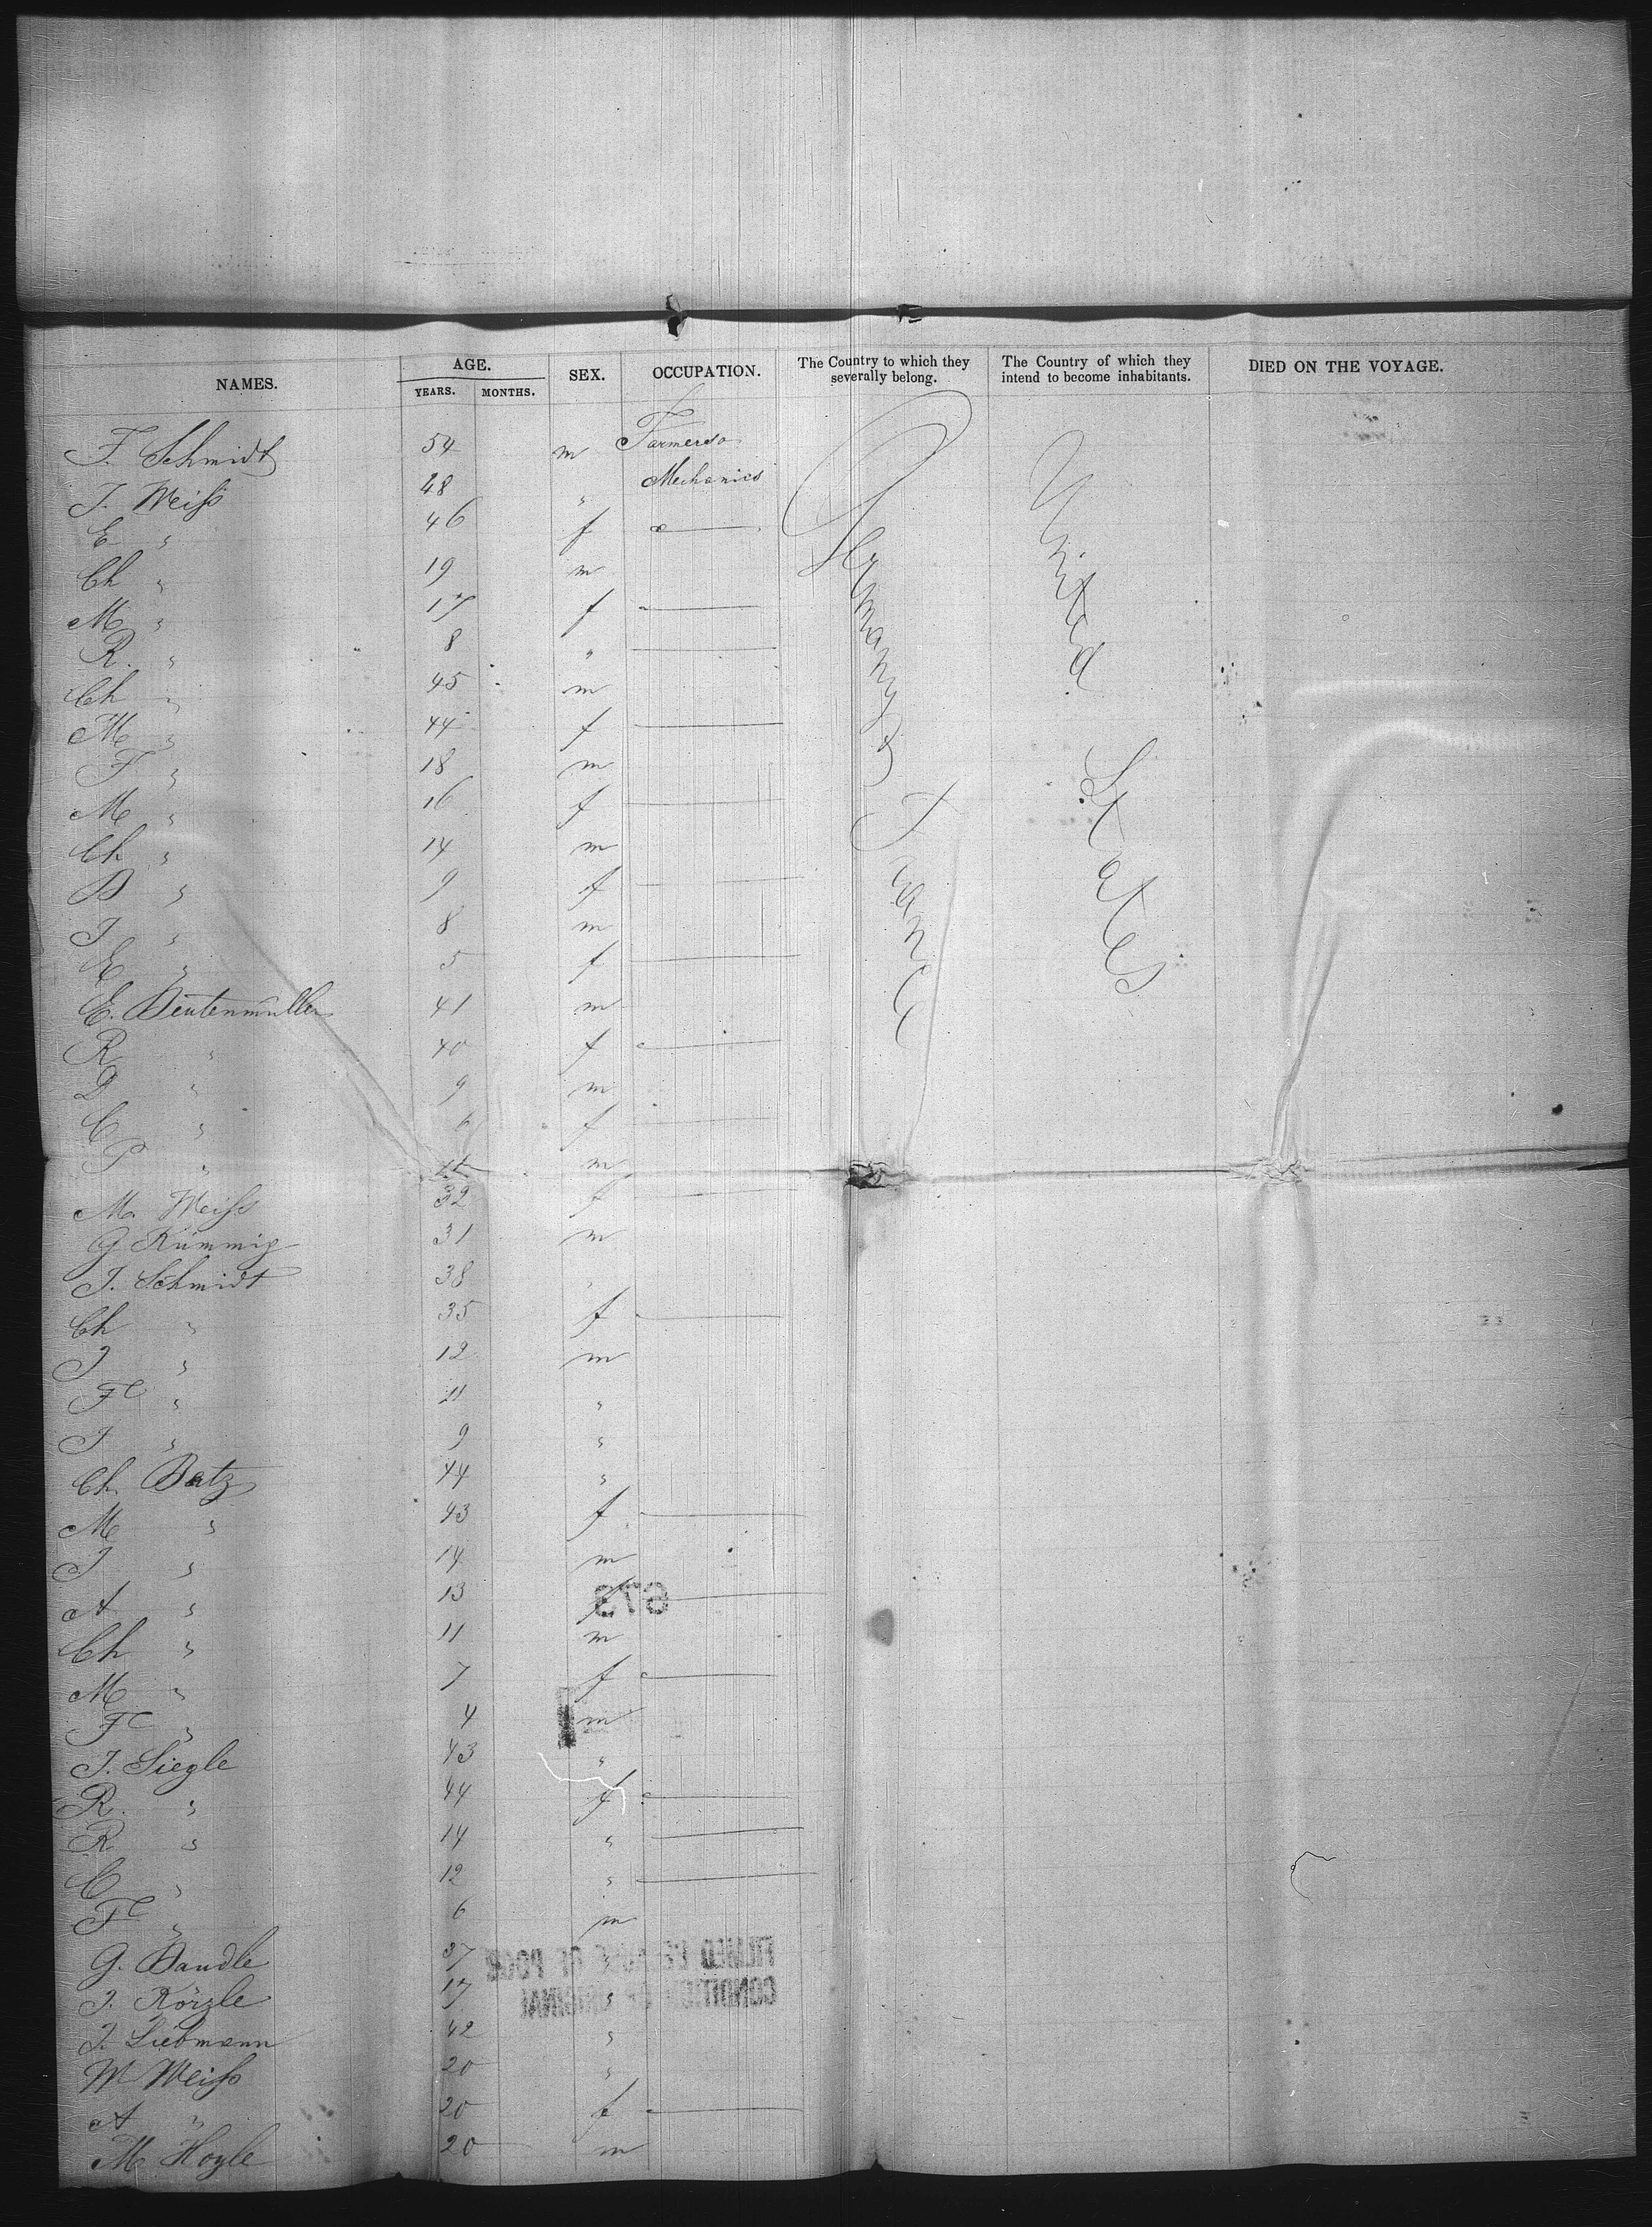 NAMES. AGE. YEARS. MONTHS. SEX. OCCUPATION. The Country to which they severally belong. The Country of which they intend to become inhabitants. DIED ON THE VOYAGE.
F. Schmidt 54 m Farmers
J. Weiß 48 " Mechanics Germany & France United States
E " 46 f
Ch " 19 m
M " 17 f
R. " 8 "
Ch " 45 m
M " 44 f
F " 18 m
M " 16 f
Ch " 14 m
B " 9 f
J " 8 m
E " 5 f
E. Beutenmüller 41 m
R " 40 f
D " 9 m
C " 6 f
P " m
Ma Weiß 32 f
G Rümmig 31 m
J. Schmidt 38 "
Ch " 35 f
J " 12 m
Fc " 11 "
J " 9 "
Ch Batz 44 "
M " 43 f
J " 14 m
A " 13 f
673
Ch " 11 m
M " 7 f
Fc " 4 m
J. Siegle 43 "
R. " 44 f
R " 14 "
C " 12 "
Fc " 6 m
G. Bandle 37 "
J. Körzle 17 "
J. Liebmann 42 "
FILMED BECAUSE OF POOR
CONDITION OF ORIGINAL
W Weiß 20 "
A " 20 f
M Hoyle 20 m